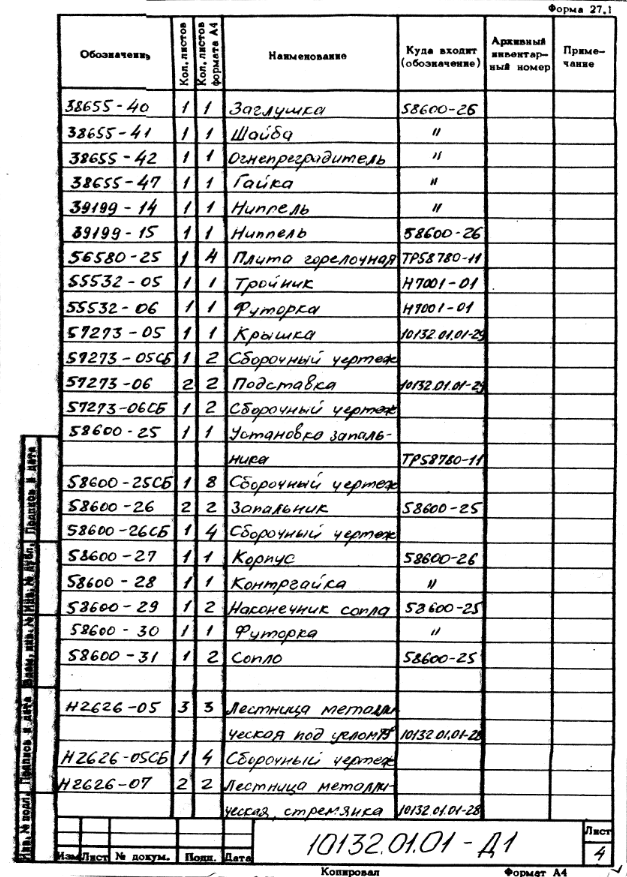 Форма 27.1
Обозначение Кол. листов Кол. листов формата А4 Наименование Куда входит (обозначение) Архивный инвентарный номер Примечание
38655-40 1 1 Заглушка 58600-26
38655-41 1 1 Шайба "
38655-42 1 1 Огнепреградитель "
38655-47 1 1 Гайка "
39199-14 1 1 Ниппель "
39199-15 1 1 Ниппель 58600-26
56580-25 1 4 Плита горелочная ТР58780-11
55532-05 1 1 Тройник Н7001-01
55532-06 1 1 Футорка Н7001-01
57273-05 1 1 Крышка 10132.01.01-29
57273-05СБ 1 2 Сборочный чертеж
57273-06 2 2 Подставка 10132.01.01-29
57273-06СБ 1 2 Сборочный чертеж
58600-25 1 1 Установка запаль-
ника ТР58780-11
58600-25СБ 1 8 Сборочный чертеж
58600-26 2 2 Запальник 58600-25
58600-26СБ 1 4 Сборочный чертеж
58600-27 1 1 Корпус 58600-26
58600-28 1 1 Контргайка "
58600-29 1 2 Наконечник сопла 58600-25
58600-30 1 1 Футорка "
58600-31 1 2 Сопло 58600-25
Н2626-05 3 3 Лестница металли
ческая под углом 10132.01.01-28
Н2626-05СБ 1 4 Сборочный чертеж
Н2626-07 2 2 Лестница металли-
ческая, стремянка 10132.01.01-28
Инв. № подл. Подпись и дата Взам. инв. № Инв. № дубл. Подпись и дата
10132.01.01-Д1
Лист
4
Изм Лист № докум. Подп. Дата
Копировал Формат А4